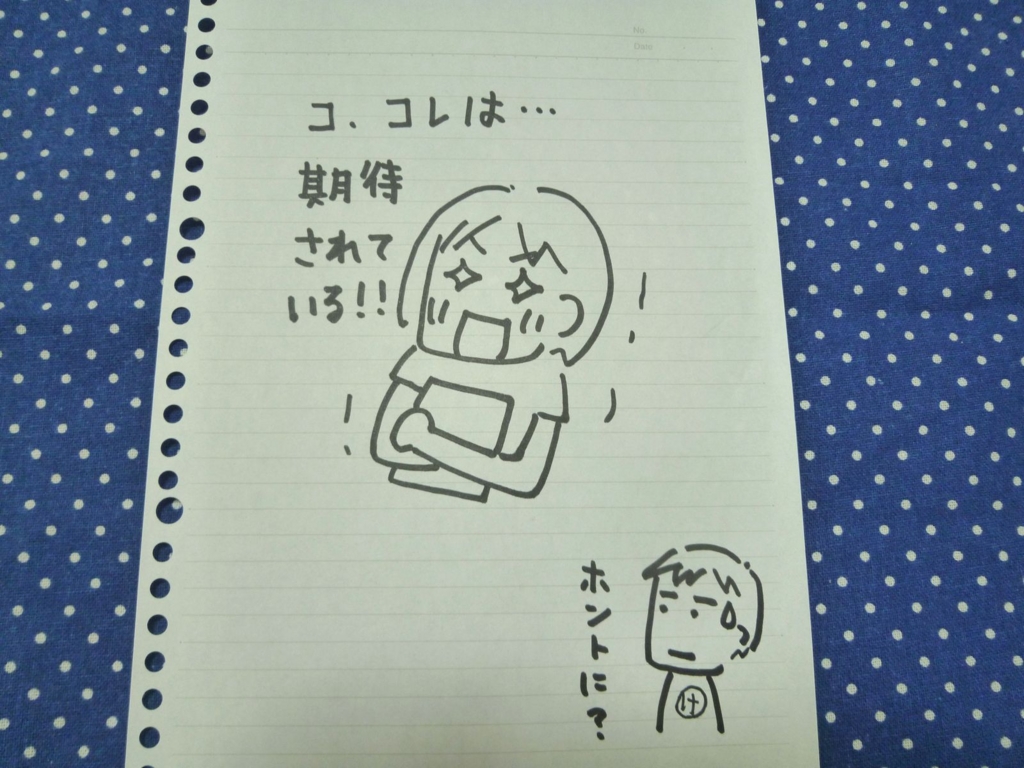 No.
Date
コ、コレは…
期待
されて
いる!!
ホントに?
け